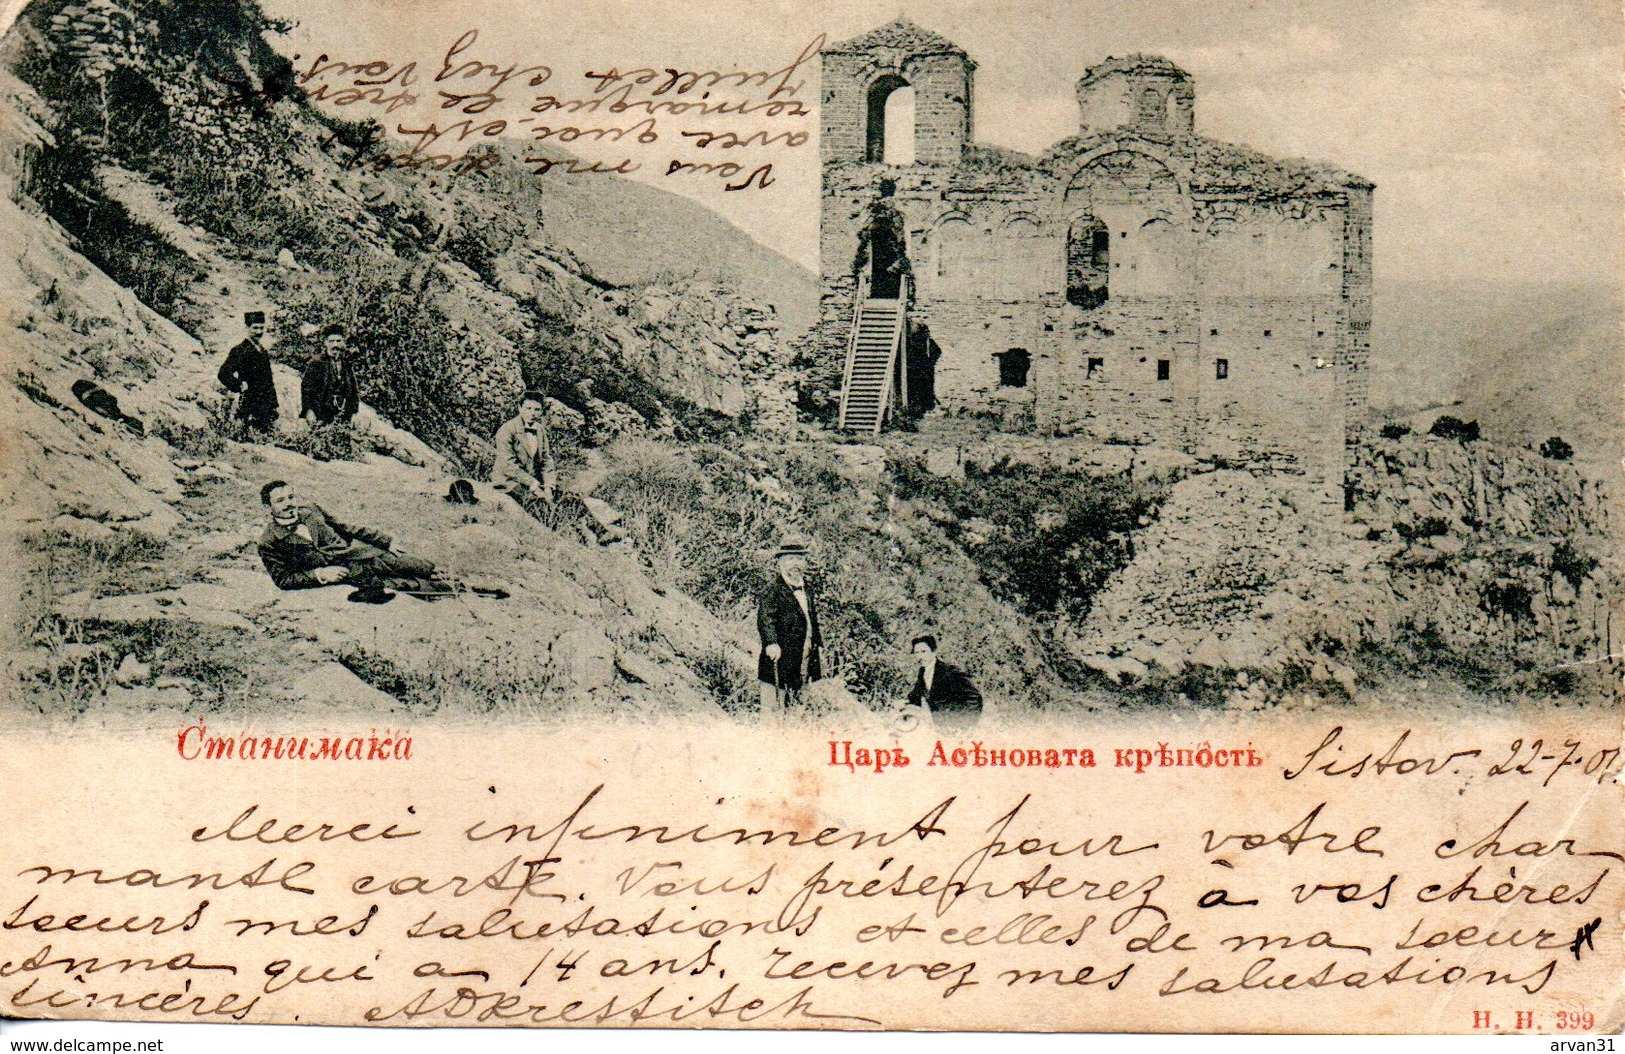 Vous me direz
avec quoi est
remarqué le
Juillet chez Vous.
Станимака
Царь Асѣновата крѣпость
Sistov. 22-7.01.
Merci infiniment pour votre char
mante carte. Vous présenterez à vos chères
soeurs mes salutations et celles de ma soeur
Anna qui a 14 ans. Recevez mes salutations
sincères.
H. H. 399
delcampe.net
arvan31